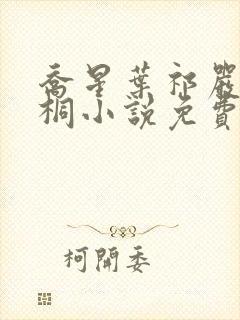 喬星葉祁嚴
桐小說免費
柯開委